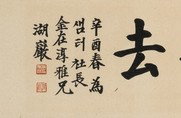 去
辛酉春為
샘터社長
金在淳雅兄
湖巖